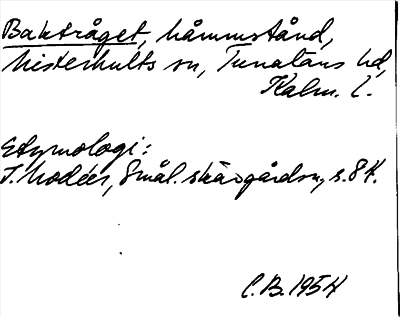 Baktråget, håmmstånd,
Misterhults sn, Tunaläns hd,
Kalm. l.
Etymologi:
I. Modéer, Smål. skärgårdsn, s. 84.
C.B. 1954